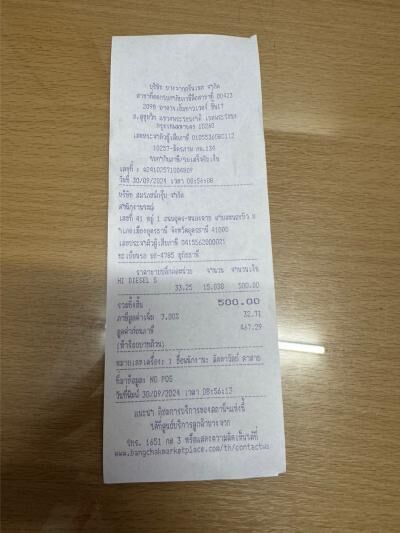 บริษัท บางจากกรีนเนท จำกัด
สาขาที่ออกใบกำกับภาษีคือสาขาที่ 00423
2098 อาคารเอ็มทาวเวอร์ ชั้น17
ถ.สุขุมวิท แขวงพระโขนงใต้ เขตพระโขนง
กรุงเทพมหานคร 10260
เลขประจำตัวผู้เสียภาษี
10257-มิตรภาพ กม.139
ใบกำกับภาษี/ใบเสร็จรับเงิน
เลขที่ :
วันที่ 30/09/2024 เวลา 08:56:08
บริษัท สมรถยนต์กรุ๊ป จำกัด
สำนักงานใหญ่
เลขที่ 41 หมู่ 1 ถนนอุดร-หนองคาย
อำเภอเมืองอุดรธานี จังหวัดอุดรธานี 41000
เลขประจำตัวผู้เสียภาษี 0415562000021
ทะเบียนรถ 4785 อุดรธานี
ราคาขายปลีกต่อหน่วย จำนวน จำนวนเงิน
HI DIESEL S
33.25 15.038 500.00
รวมทั้งสิ้น 500.00
ภาษีมูลค่าเพิ่ม 7.00% 32.71
มูลค่าก่อนภาษี 467.29
(ห้าร้อยบาทถ้วน)
หมายเลขเครื่อง: 1 ชื่อพนักงาน:
ที่มาข้อมูล: NO POS
วันที่พิมพ์ 30/09/2024 เวลา 08:56:13
แนะนำ ติชมการบริการของสถานีฯแห่งนี้
ได้ที่ศูนย์บริการลูกค้าบางจาก
โทร. 1651 กด 3 หรือแสดงความคิดเห็นได้ที่
www.bangchakmarketplace.com/th/contactus